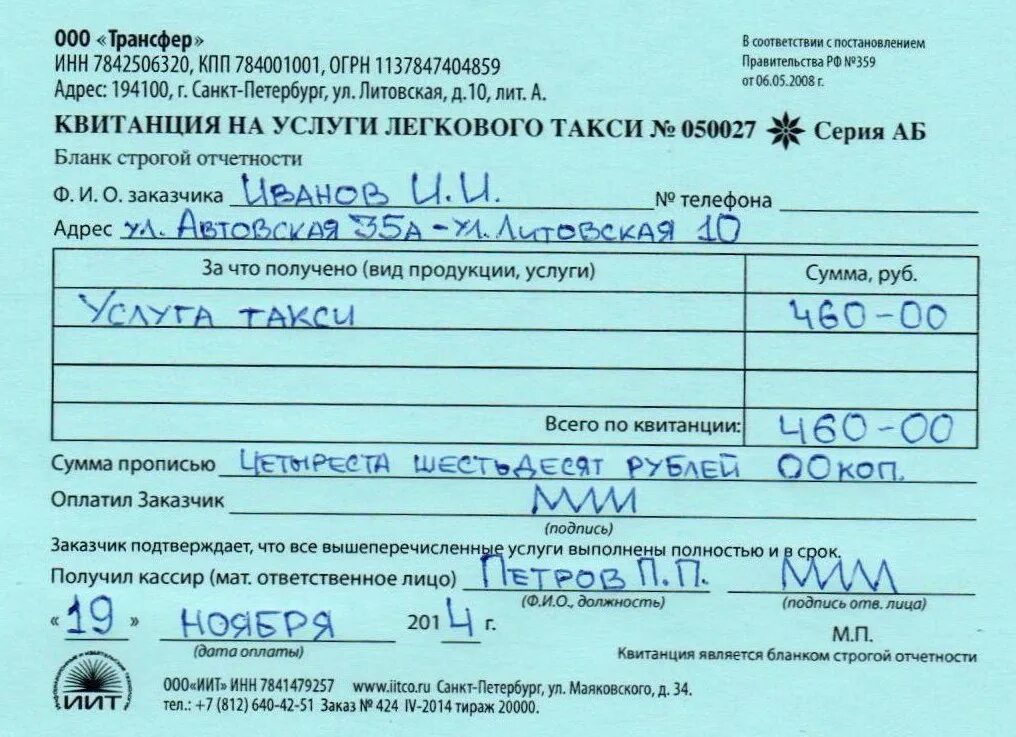 ООО «Трансфер»
ИНН 7842506320, КПП 784001001, ОГРН 1137847404859
Адрес: 194100, г. Санкт-Петербург, ул. Литовская, д.10, лит. А.
В соответствии с постановлением
Правительства РФ №359
от 06.05.2008 г.
КВИТАНЦИЯ НА УСЛУГИ ЛЕГКОВОГО ТАКСИ № 050027 Серия АБ
Бланк строгой отчетности
Ф. И. О. заказчика Иванов И.И. № телефона
Адрес ул. Автовская 35а - ул. Литовская 10
За что получено (вид продукции, услуги) Сумма, руб.
Услуга такси 460-00
Всего по квитанции: 460-00
Сумма прописью Четыреста шестьдесят рублей 00 коп.
Оплатил Заказчик
(подпись)
Заказчик подтверждает, что все вышеперечисленные услуги выполнены полностью и в срок.
Получил кассир (мат. ответственное лицо) Петров П.П.
(Ф.И.О., должность) (подпись отв. лица)
« 19 » ноября 2014 г.
(дата оплаты)
М.П.
Квитанция является бланком строгой отчетности
ИИТ
ООО«ИИТ» ИНН 7841479257 www.iitco.ru Санкт-Петербург, ул. Маяковского, д. 34.
тел.: +7 (812) 640-42-51 Заказ № 424 IV-2014 тираж 20000.